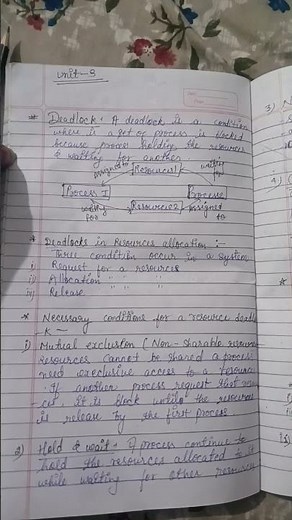 Unit-3
* Deadlock: A deadlock is a condition
where is a set of process is blocked
because process holding the resources
& waiting for another
assigned to
Resources1
waiting for
Process I
Process2
waiting for
Resources2
assigned to
* Deadlocks in Resources allocation :-
Three condition occur in a system
i) Request for a resources
ii) Allocation " " "
iii) Release " " "
* Necessary conditions for a resource deadlo
ck —
1) Mutual exclusion (Non-Sharable resource
Resources cannot be shared a process
need execlusive access to a resource
. If another process request that resour
ces it is block untile the resources
is release by the first process
2) Hold & wait : A process continue to
hold the resources allocated to it
while waiting for other resources
3)